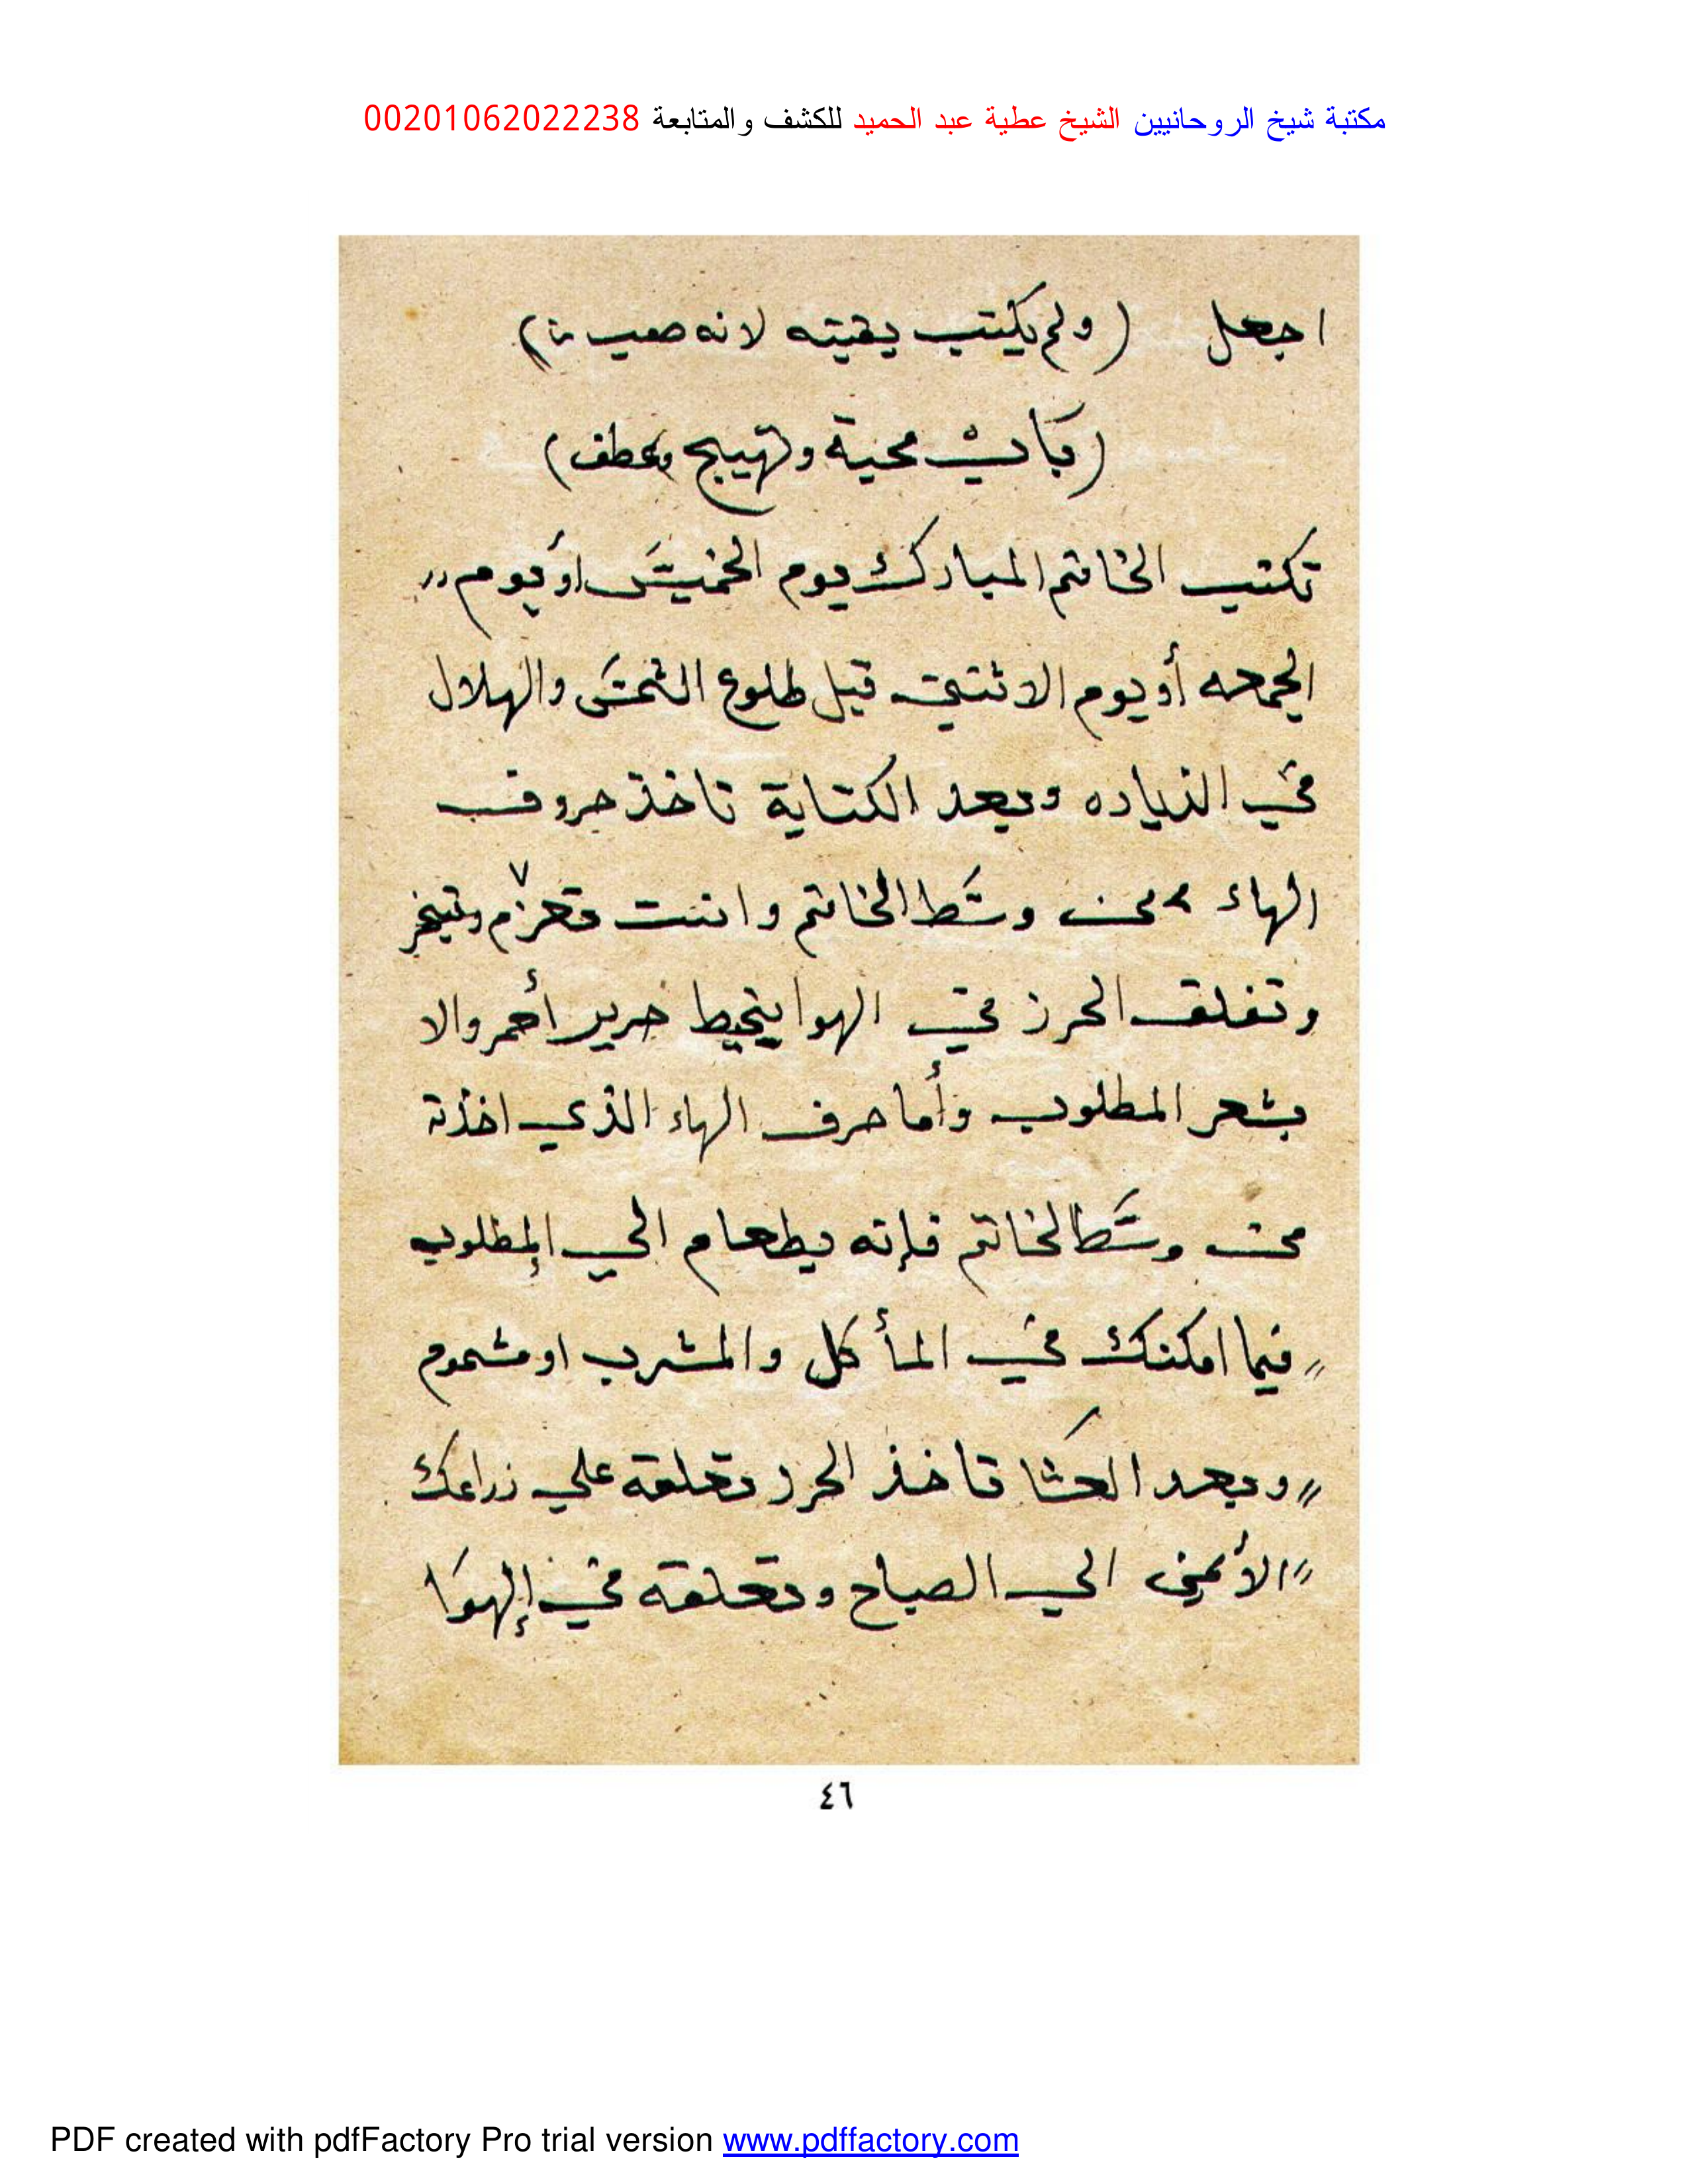 مكتبة شيخ الروحانيين الشيخ عطية عبد الحميد للكشف والمتابعة 00201062022238
اجعل (ولم يكتب بقيته لانه صعب)
(باب محبة وتهييج وعطف)
تكتب الخاتم المبارك يوم الخميس او يوم
الجمعه أو يوم الاثنين قبل طلوع الشمس والهلال
في الزياده وبعد الكتابة تاخذ حروف
الهاء من وسط الخاتم وانت تعزم وتبخر
وتعلق الحرز في الهوا بخيط حرير أحمر والا
بشعر المطلوب وأما حرف الهاء الذي اخذته
من وسط الخاتم فإنه يطعام الي المطلوب
فيما امكنك في المأكل والمشرب او مشموم
وبعد العشا تاخذ الحرز تعلقه علي زراعك
الأيمن الي الصباح وتعلقه في الهوا
٤٦
PDF created with pdfFactory Pro trial version www.pdffactory.com